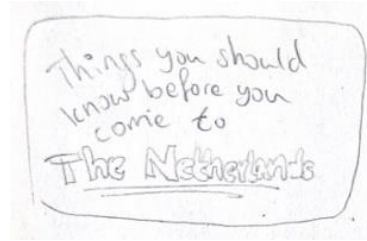 Things you should
know before you
come to
The Netherlands